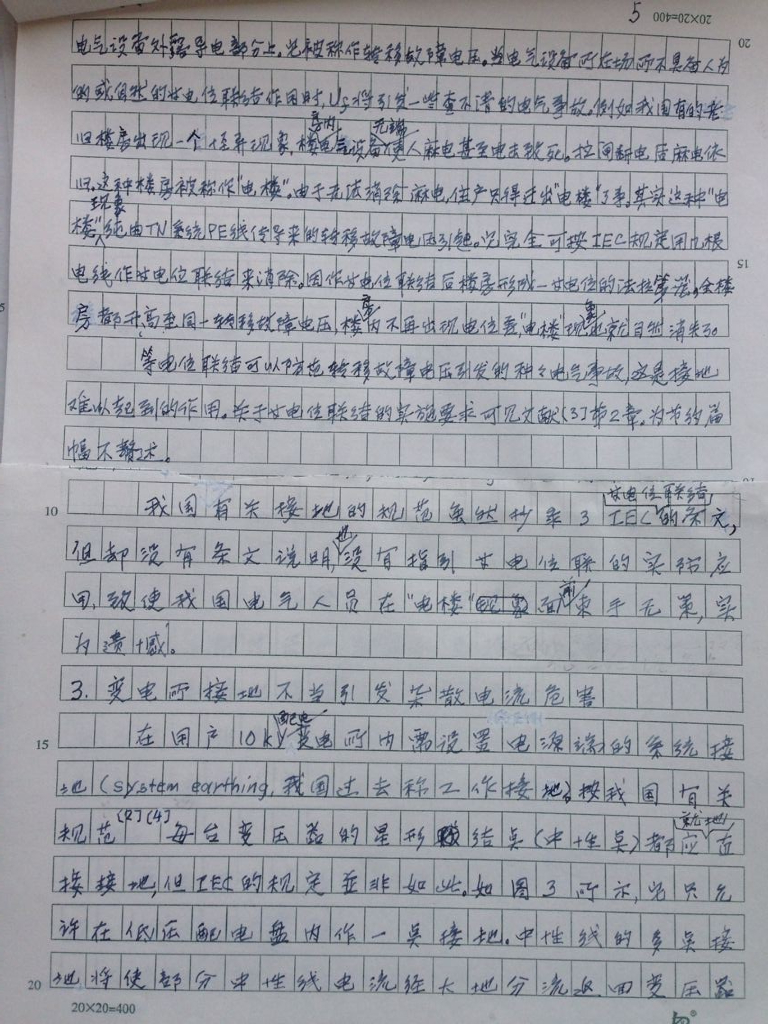 5 20×20=400
20
电气设备外露导电部分上。它被称作转移故障电压。当电气设备所在场所不具备人为
的或自然的等电位联结作用时,Uf将引发一些查不清的电气事故。例如我国有的老
旧楼房出现一个怪异现象,楼房内电气设备无端使人麻电甚至电击致死。拉闸断电后麻电依
旧。这种楼房被称作"电楼"。由于无法消除麻电,住户只得迁出"电楼"了事。其实这种"电
楼"现象纯由TN系统PE线传导来的转移故障电压引起。它完全可按IEC规定用几根
15
电线作等电位联结来消除。因作等电位联结后楼房形成一等电位的法拉第笼,全楼
房都升高至同一转移故障电压,楼房内不再出现电位差,"电楼"现象也就自然消失了。
等电位联结可以防范转移故障电压引发的种々电气事故,这是接地
难以起到的作用。关于等电位联结的实施要求可见文献[3]第2章。为节约篇
幅不赘述。
10 我国有关接地的规范虽然抄录了IEC等电位联结的条文,
但却没有条文说明,也没有指引等电位联的实际应
用,致使我国电气人员在"电楼"面前束手无策,实
为遗憾。
3. 变电所接地不当引发杂散电流危害
15 在用户10kV配电变电所内需设置电源端的系统接
地(system earthing,我国过去称工作接地)。按我国有关
规范[2][4]每台变压器的星形结点(中性点)都应就地直
接接地,但IEC的规定并非如此。如图3所示,它只允
许在低压配电盘内作一点接地。中性线的多点接
20 地将使部分中性线电流经大地分流返回变压器
20×20=400